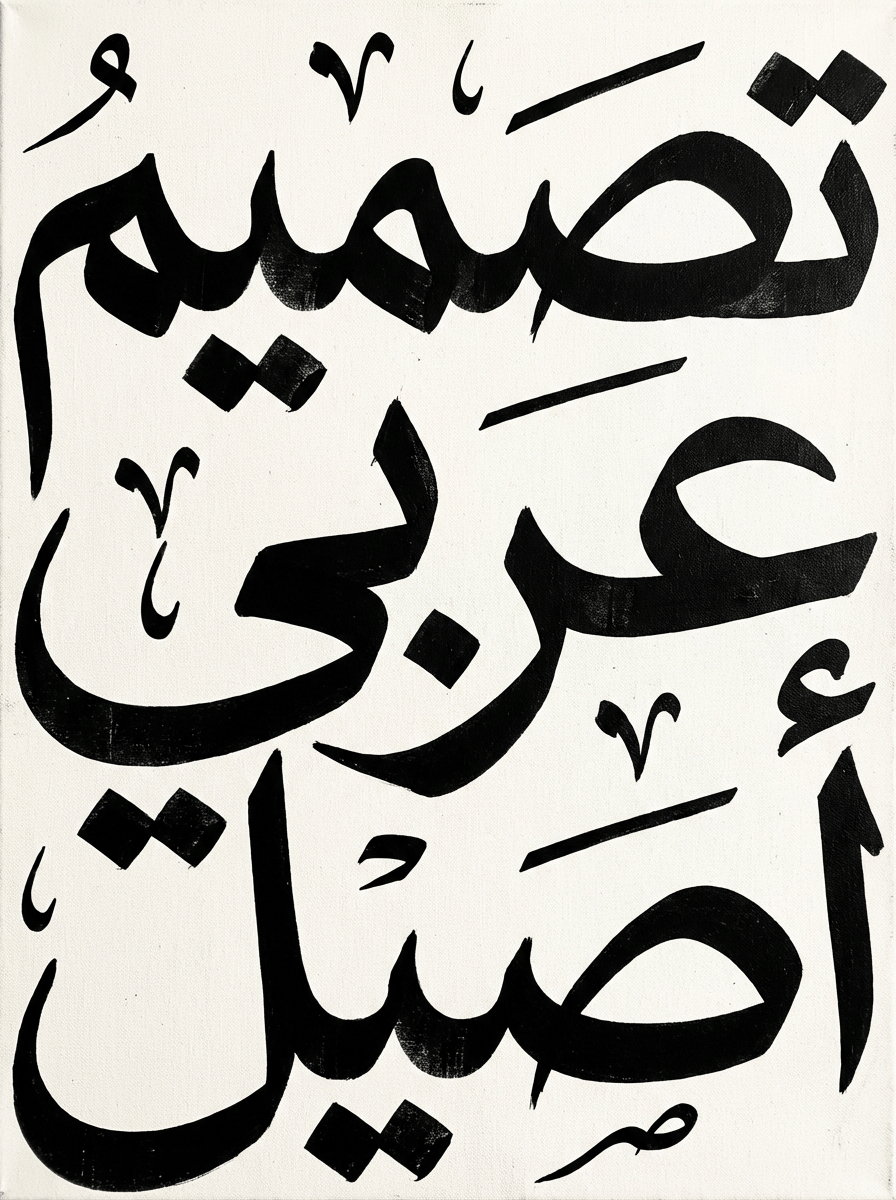 تَصميمُ
عَربي
أَصيل